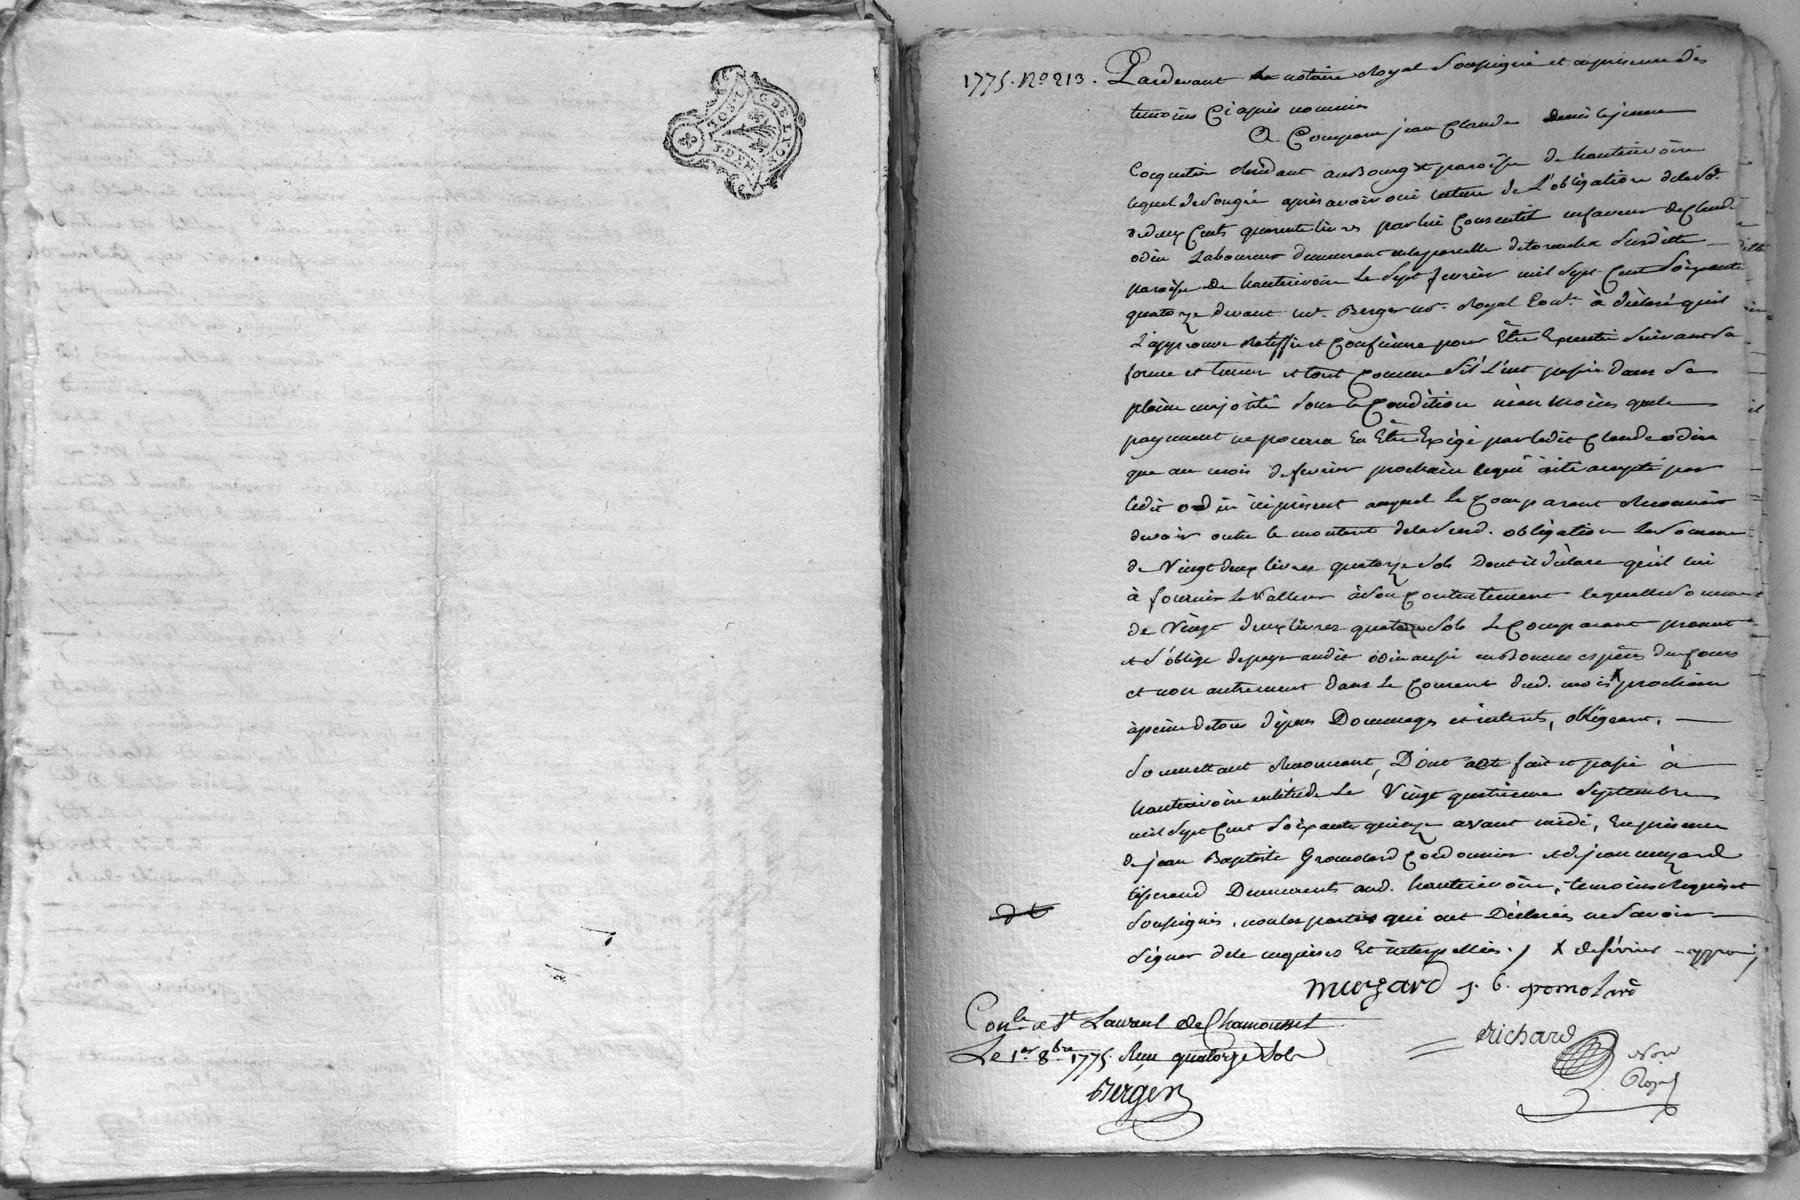 G. DE LYON
1775. No 213. Pardevant le notaire Royal Soussigné et en presence des
temoins Ci après nommés
A Comparu jean Claude denis le jeune
Cocquetier Residant au Bourg et paroisse de hauterivoire
lequel de Son gré après avoir oui lecture de L'obligation de la So.
de deux Cents quarente livres par lui Consentit en faveur de Claude
odin Laboureur demeurant en la parcelle de Susditte
paroisse De hauterivoire Le Sept fevrier mil Sept Cent Soixante
quatorze devant me. Berger no. Royal à déclaré qu'il
L'approuve Ratiffie et Confirme pour Etre Executée Suivant Sa
forme et teneur et tout Comme S'il L'eut passée dans Sa
pleine majorité Sous la Condition néan moins que le
payement ne pourra En Etre Exigé par ledit Claude odin
que au mois de fevrier prochain ce qui à été accepté par
ledit odin ici présent auquel Le Comparant Reconnoit
devoir outre le montant de la Susd. obligation La Somme
de Vingt deux livres quatorze Sols Dont il déclare qu'il lui
à fournir La Valleur à Son Contentement laquelle Somme
de Vingt deux livres quatorze Sols Le Comparant promet
et S'oblige de payer audit odin aussi en Bonnes espèces du Cours
et non autrement dans Le Courent dud. mois X prochain
à peine de tous dépens Dommages et interets, obligeant,
Soumettant Renonçant, Dont acte fait et passé à
hauterivoire en l'étude Le Vingt quatrieme Septembre
mil Sept Cent Soixante quinze avant midi, En présence
de jean Baptiste Gromolard Cordonnier et de jean muzard
tisserand Demeurants aud. hauterivoire, temoins Requis et
Soussignés, non les parties qui ont Déclarées ne Savoir
Signer de ce enquises Et interpellées./ X de février approuvé
muzard j. b. gromolard
Conlé. a St Laurent de Chamousset
Le 1er 8bre 1775. Reçu quatorze Sols
Berger
Richard
Nore
Royal